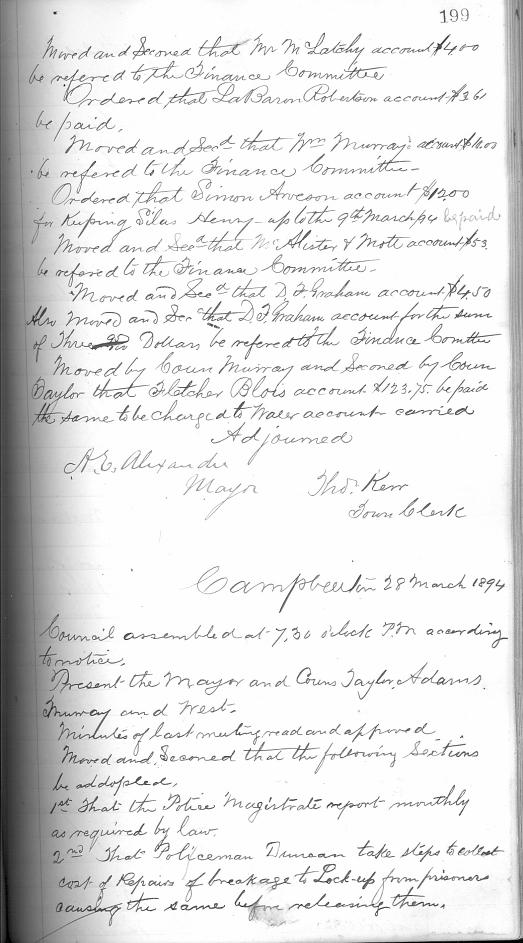 199
Moved and Seconed that Mr McLatchy account $4.00
be refered to the Finance Committee
Ordered that LaBaron Robertson account $3.61
be paid.
Moved and Secd that Wm Murray's account $10.00
be refered to the Finance Committee
Ordered that Simon Arveson account $12.00
for Keeping Silas Henry up to the 9th March/94 be paid
Moved and Secd that McAlister & Mott account $53.
be refered to the Finance Committee.
Moved and Secd that D.F. Graham account $4.50
Also Moved and Sec that D.F. Graham account for the sum
of Three Dollars be refered to the Finance Comttee
Moved by Coun Murray and Seconed by Coun
Taylor that Fletcher Blois account $123.75. be paid
the same to be charged to Water account carried
Adjourned
A.E. Alexander
Mayor
Thos Kerr
Town Clerk
Campbellton 28 March 1894
Council assembled at 7,30 o'clock P.M according
to notice.
Present the Mayor and Couns Taylor, Adams.
Murray and West.
Minutes of last meeting read and approved
Moved and Seconed that the following Sections
be addopted.
1st That the Police Magistrate report monthly
as required by law.
2nd That Policeman Duncan take steps to collect
cost of Repairs of breakage to Lock-up from prisoners
causing the same before releasing them.